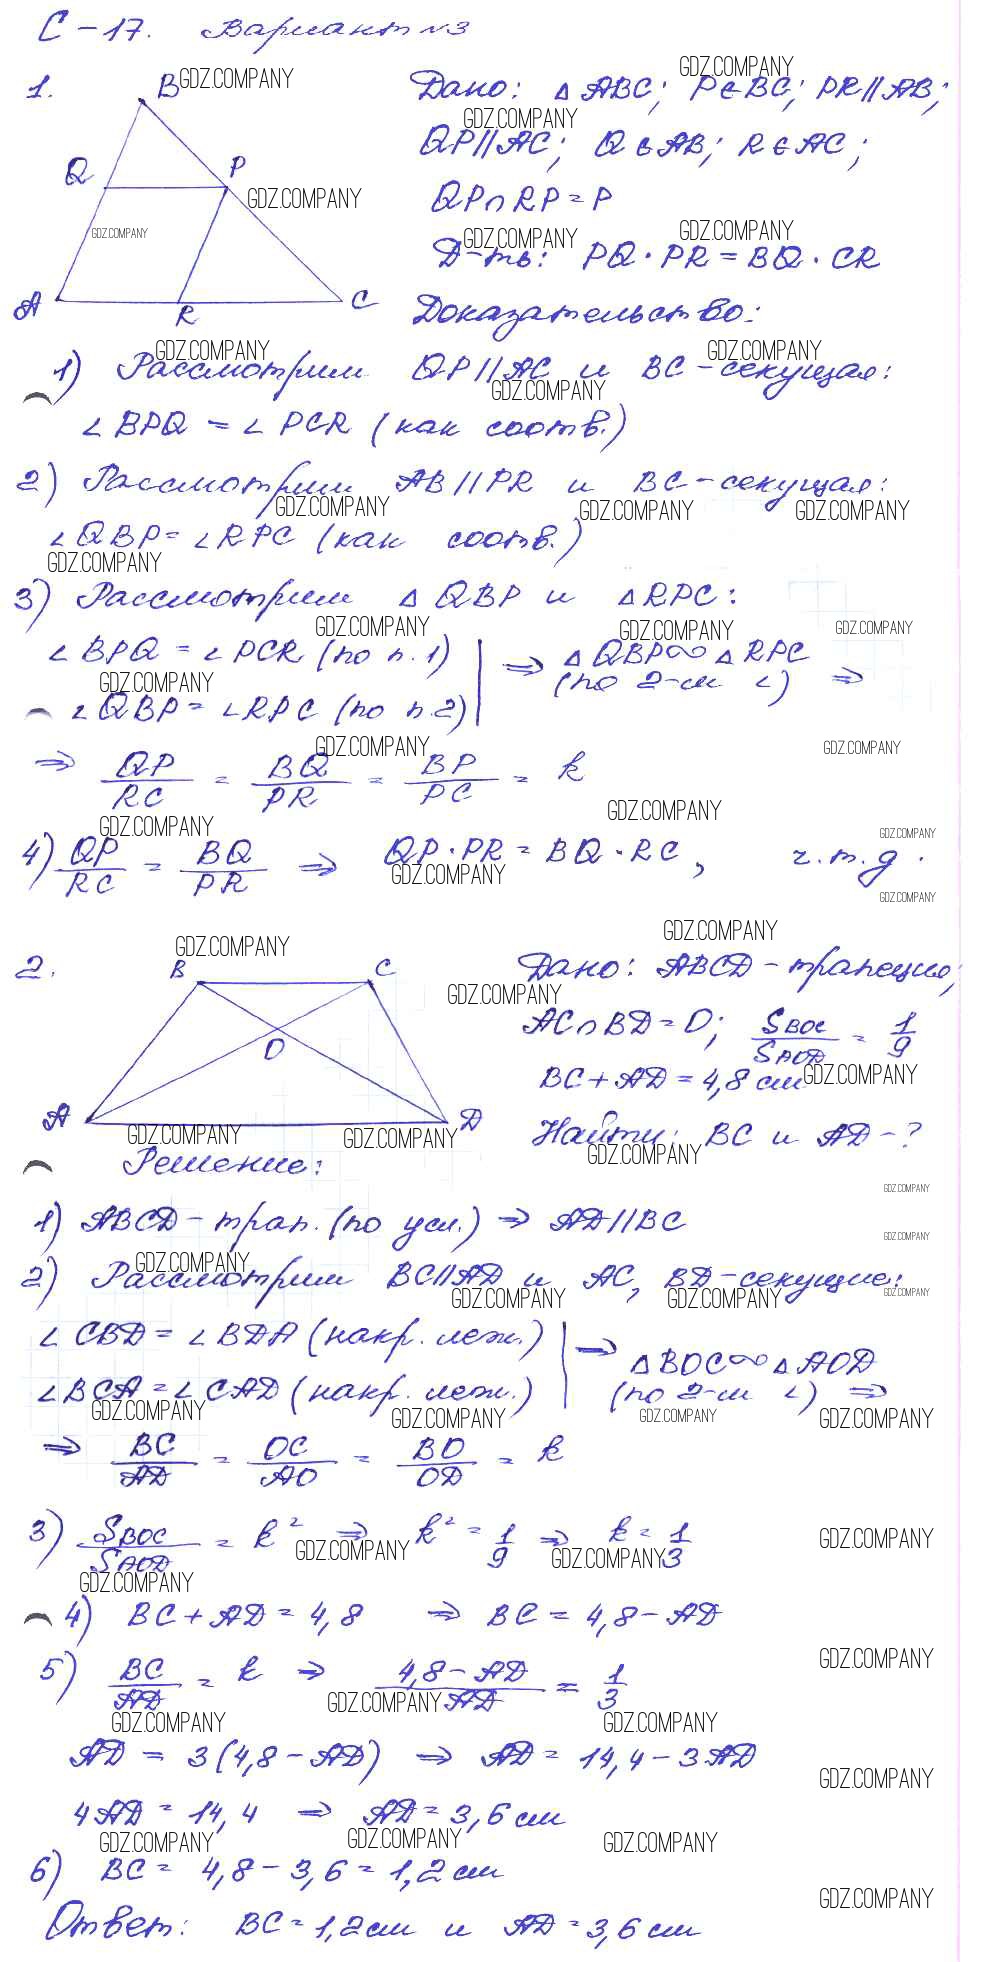 С-17. Вариант №3
1.
B
Q
P
A
R
C
Дано: △ABC; P∈BC; PR||AB;
QP||AC; Q∈AB; R∈AC;
QP∩RP=P
Д-ть: PQ·PR=BQ·CR
Доказательство:
1) Рассмотрим QP||AC и BC-секущая:
∠BPQ = ∠PCR (как соотв.)
2) Рассмотрим AB||PR и BC-секущая:
∠QBP=∠RPC (как соотв.)
3) Рассмотрим △QBP и △RPC:
∠BPQ = ∠PCR (по п.1)
∠QBP=∠RPC (по п.2)
⇒ △QBP∞△RPC
(по 2-м ∠) ⇒
⇒ QP/RC = BQ/PR = BP/PC = k
4) QP/RC = BQ/PR ⇒ QP·PR=BQ·RC, ч.т.д.
2.
B
C
O
A
D
Дано: ABCD-трапеция;
AC∩BD=O; SBOC/SAOD = 1/9
BC+AD=4,8 см
Найти: BC и AD-?
Решение:
1) ABCD-трап. (по усл.) ⇒ AD||BC
2) Рассмотрим BC||AD и AC, BD-секущие:
∠CBD=∠BDA (накр. леж.)
∠BCA=∠CAD (накр. леж.)
⇒ △BOC∞△AOD
(по 2-м ∠) ⇒
⇒ BC/AD = OC/AO = BO/OD = k
3) SBOC/SAOD = k² ⇒ k²=1/9 ⇒ k=1/3
4) BC+AD=4,8 ⇒ BC=4,8-AD
5) BC/AD = k ⇒ 4,8-AD/AD = 1/3
AD = 3(4,8-AD) ⇒ AD=14,4-3AD
4AD=14,4 ⇒ AD=3,6см
6) BC= 4,8-3,6=1,2см
Ответ: BC=1,2см и AD=3,6см
GDZ.COMPANY